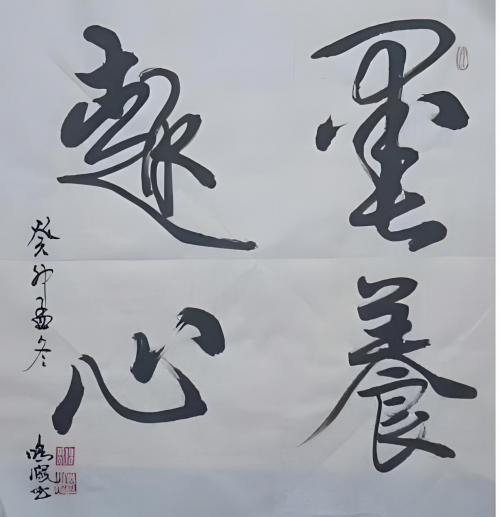 墨趣
養心
癸卯孟冬